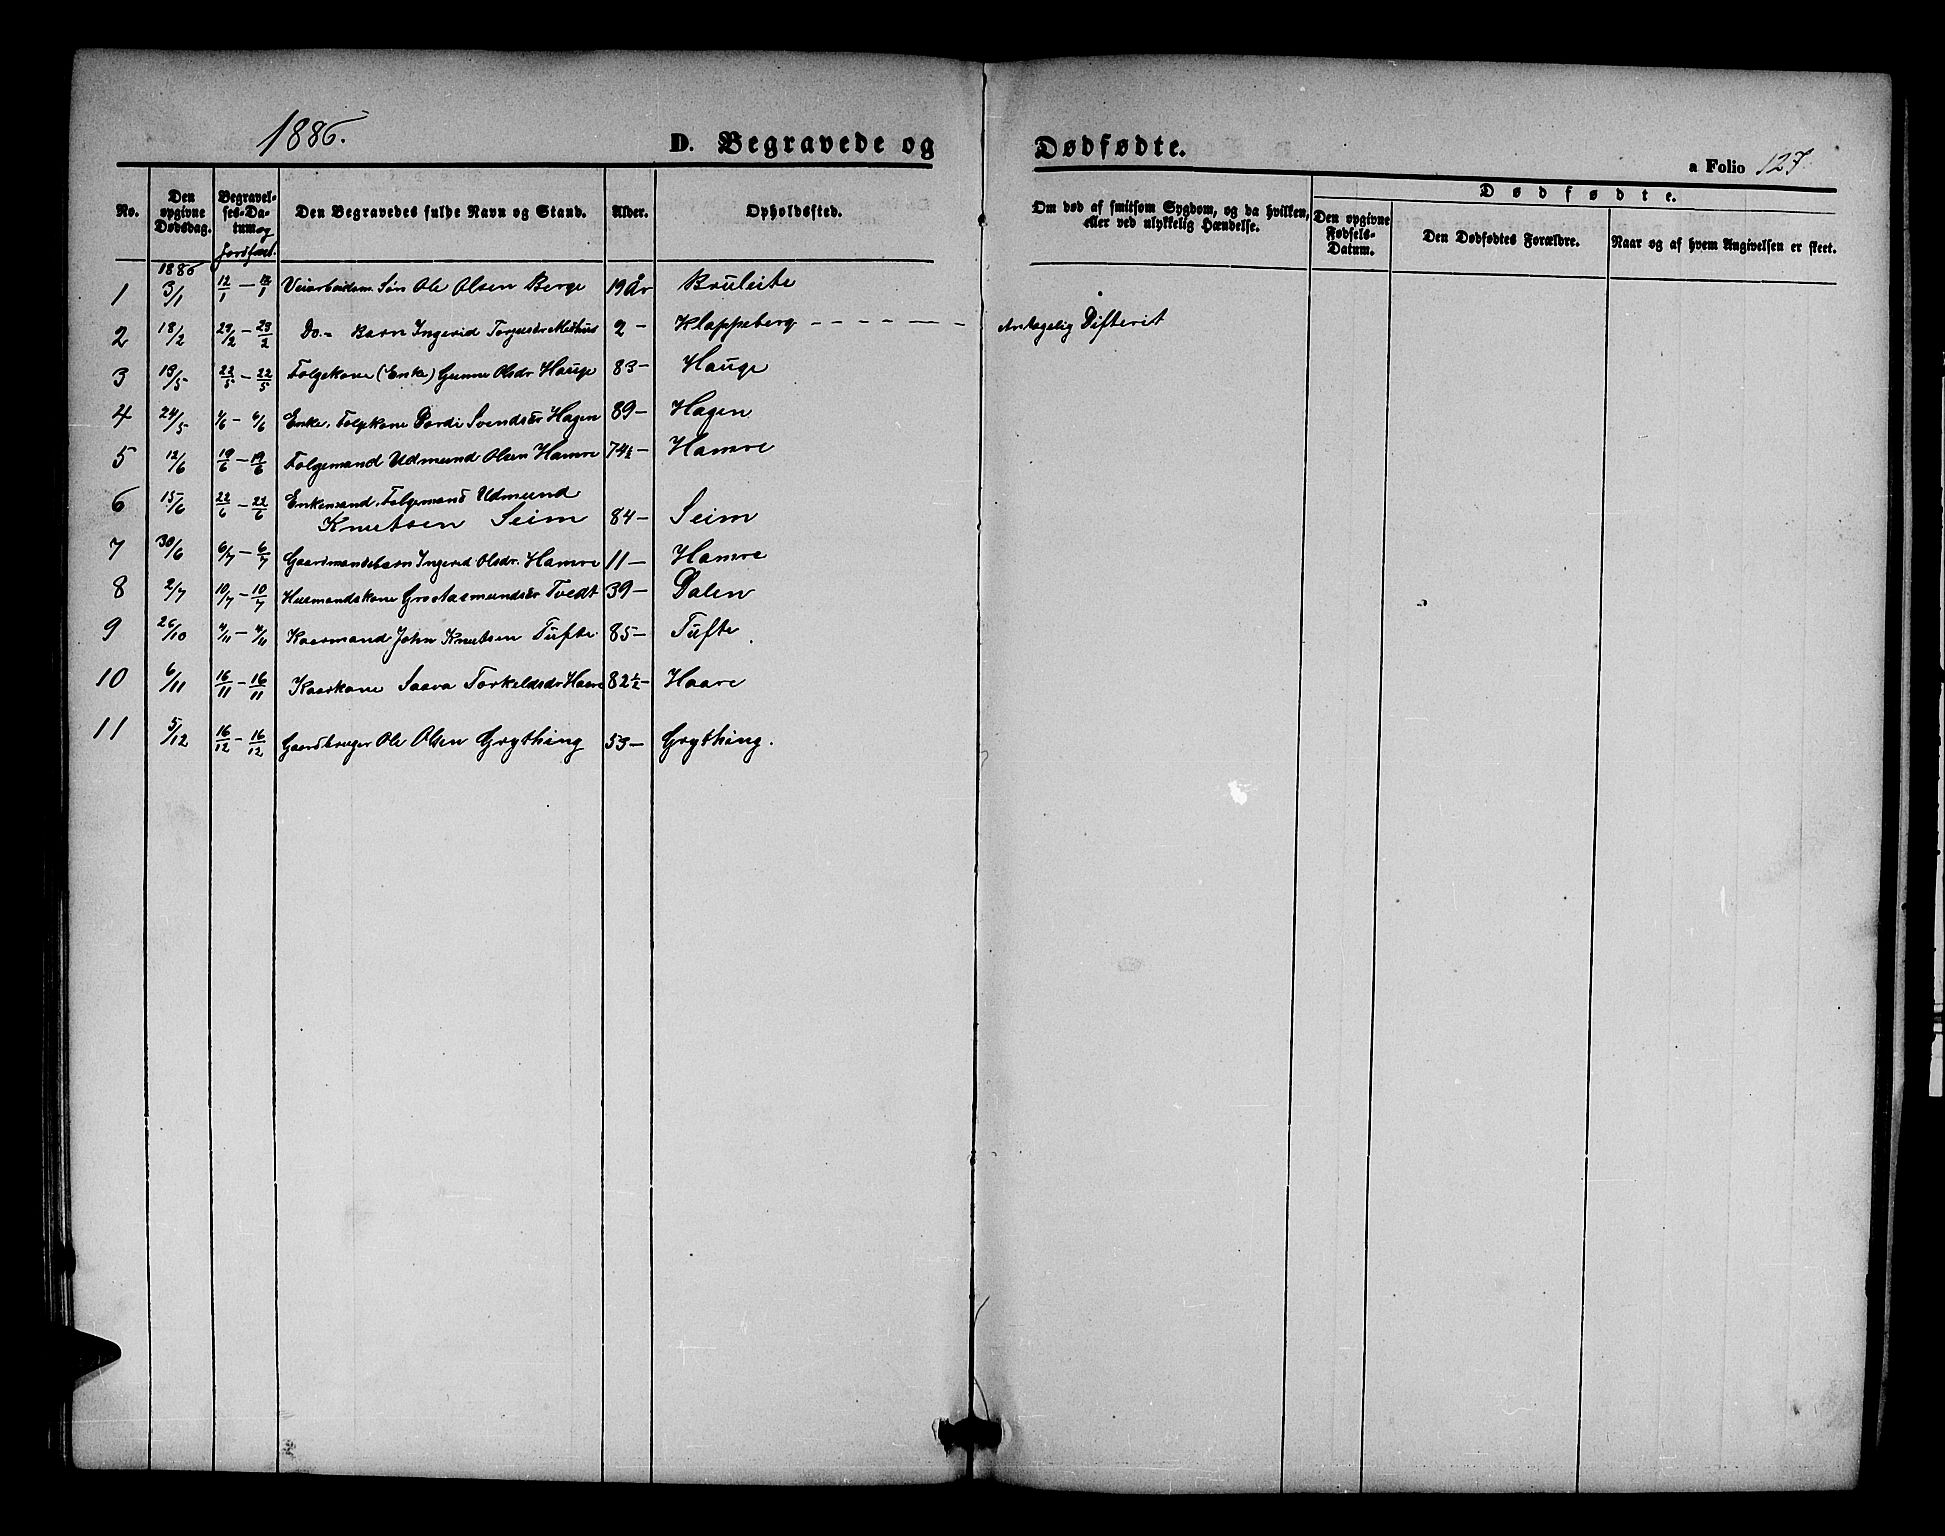 1886.
D. Begravede og Dødfødte.
a Folio 127.
No.
Den opgivne Dødsdag.
Begravelses-Datum og Jordfæst.
Den Begravedes fulde Navn og Stand.
Alder.
Opholdssted.
Om død af smitsom Sygdom, og da hvilken, eller ved ulykkelig Hændelse.
Dødfødte.
Den opgivne Fødsels-Datum.
Den Dødfødtes Forældre.
Naar og af hvem Angivelsen er skeet.
1886
1 3/1 12/1 – 12/1 Veiarbeiderm. Søn Ole Olsen Berge 19 År Bruleite
2 18/2 23/2 – 23/2 Do.- Barn Ingerid Torjusdr Medhus 2 – Klappeberg – – – – – – Antagelig Difterit
3 13/5 22/5 – 22/5 Folgekone (Enke) Gunne Olsdr. Hauge 83 – Hauge
4 24/5 4/6 – 4/6 Enke, Folgkone Dordi Svendsdr Hagen 89 – Hagen
5 12/6 19/6 – 19/6 Folgemand Udmund Olsen Hamre 74½ – Hamre
6 15/6 22/6 – 22/6 Enkemand, Folgemand Udmund
Knutsen Seim 84 – Seim
7 30/6 6/7 – 6/7 Gaardmandsbarn Ingerid Olsdr. Hamre 11 – Hamre
8 2/7 10/7 – 10/7 Husmandskone Gro Aasmundsdr Tvedt 39 – Dalen
9 26/10 4/11 – 4/11 Kaarmand John Knutsen Tufte 85 – Tufte
10 6/11 16/11 – 16/11 Kaarkone Saava Torkeldsdr Haare 82½ – Haare
11 5/12 16/12 – 16/12 Gaardbruger Ole Olsen Grything 53 – Grything.